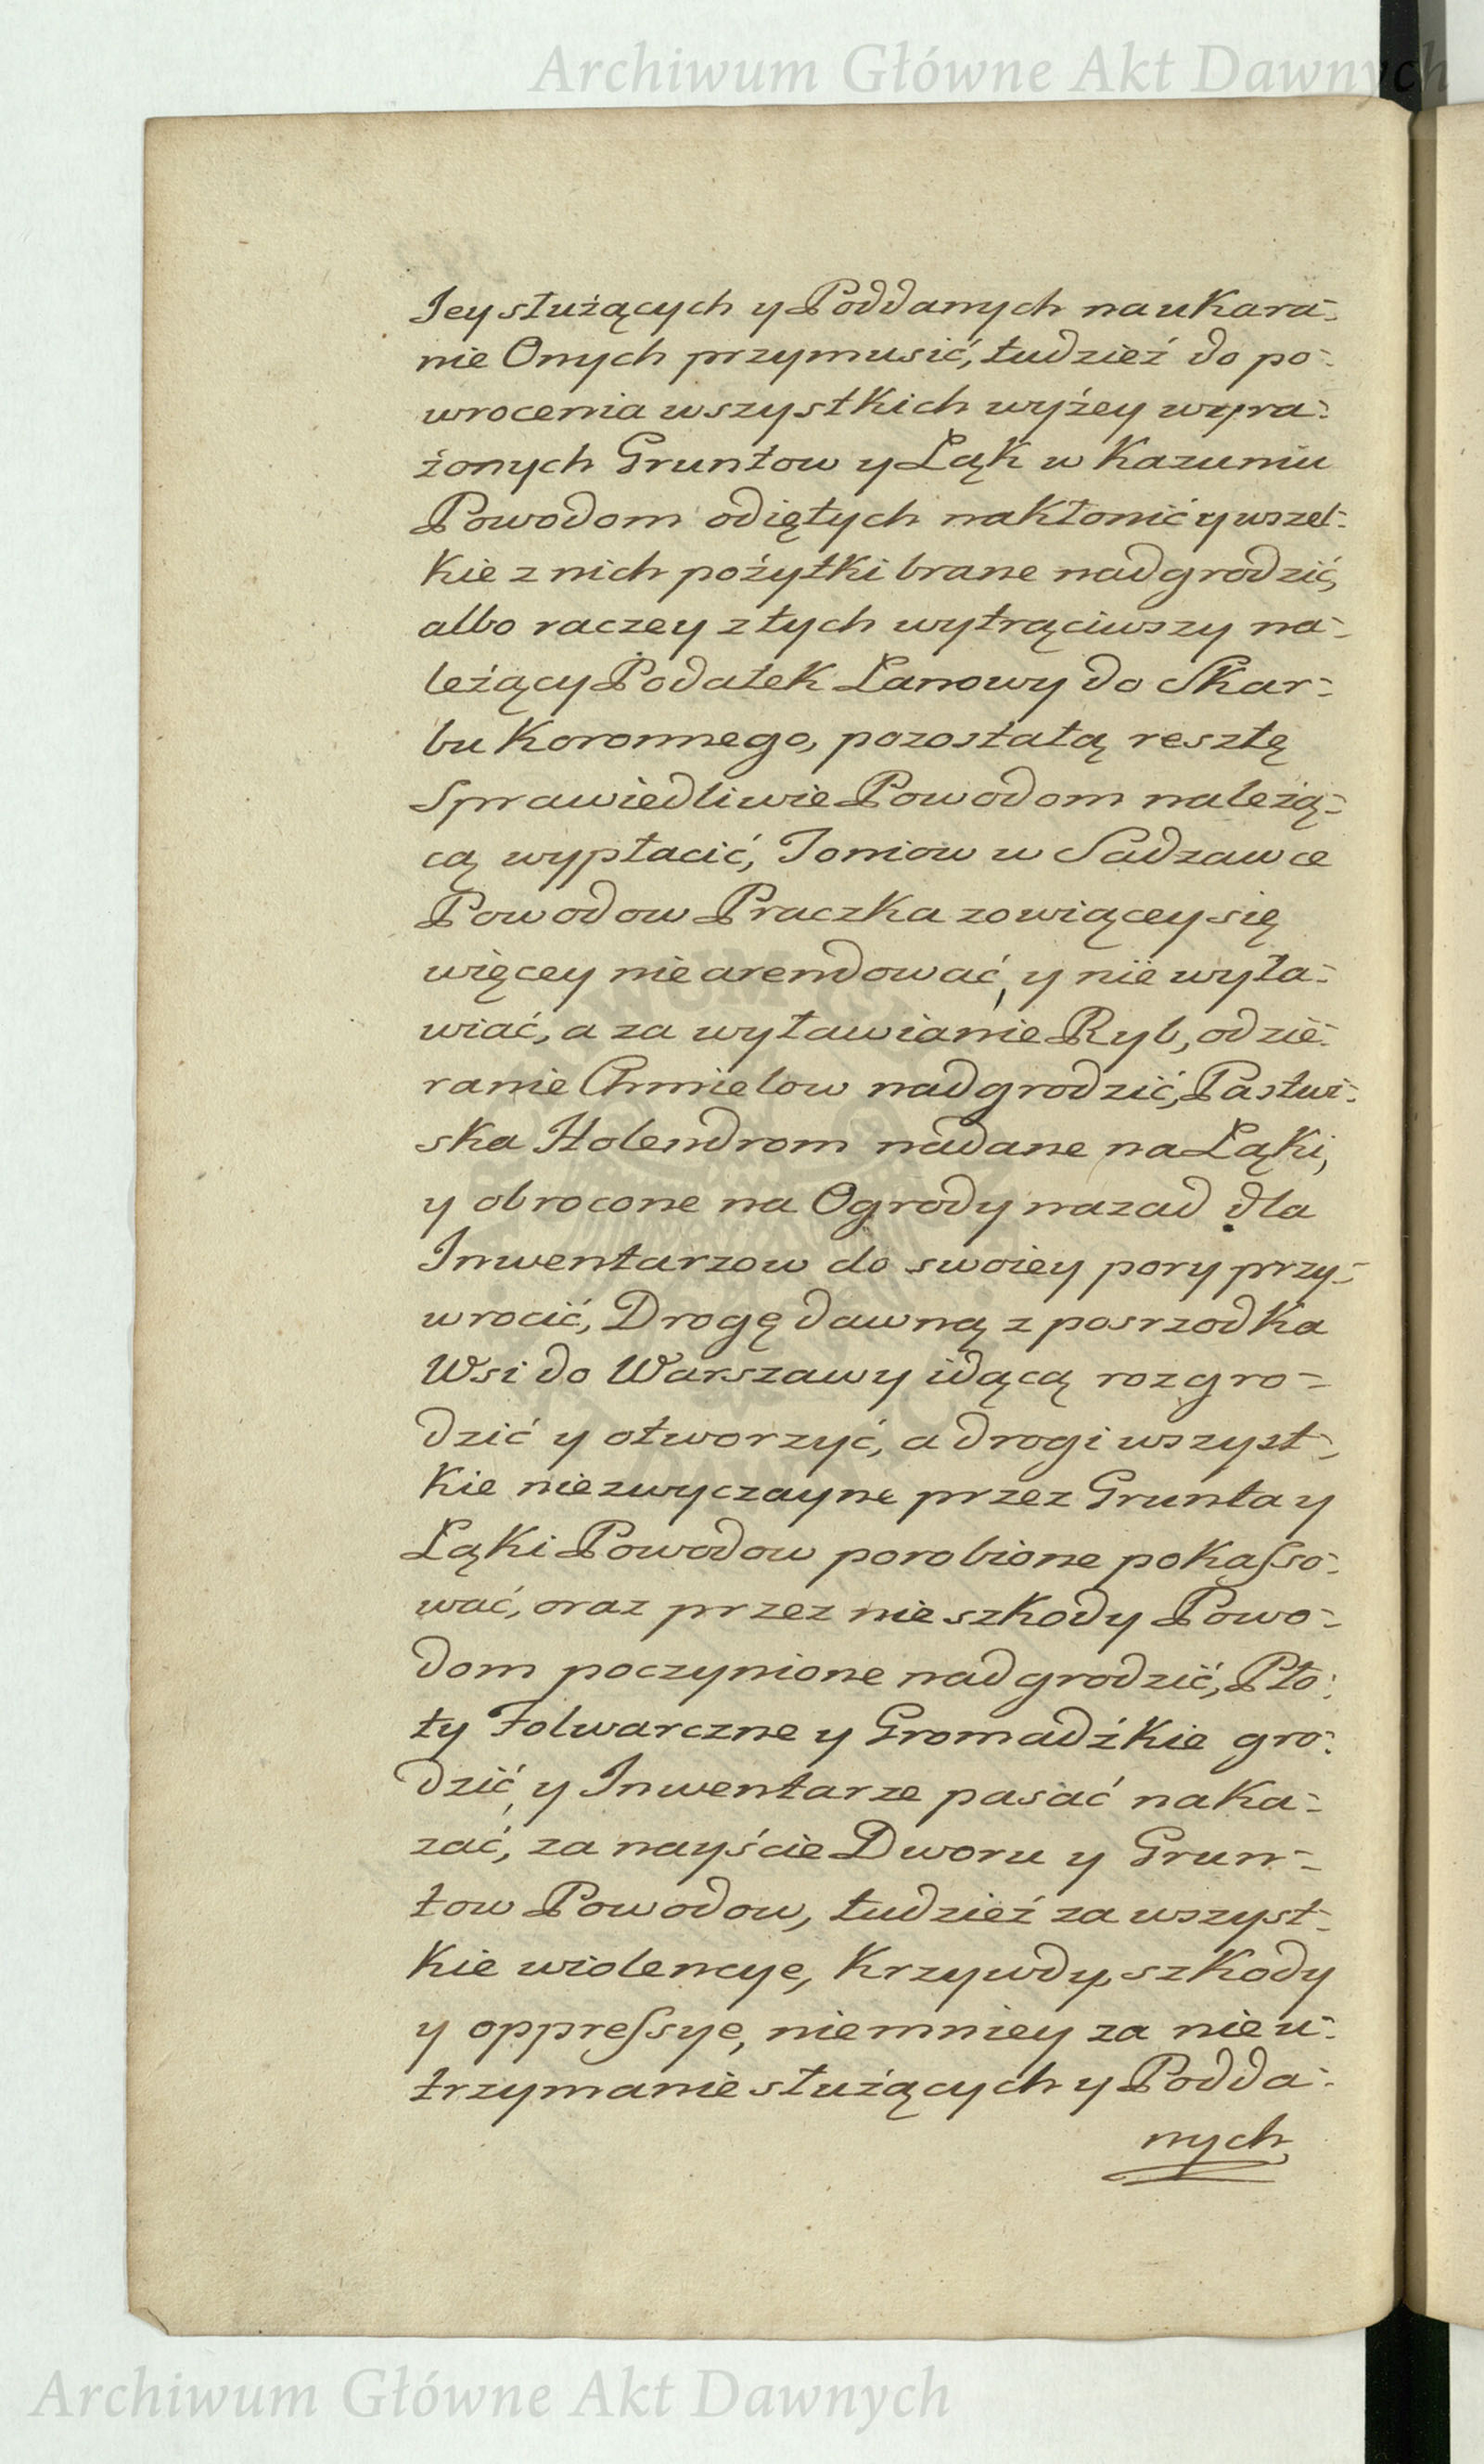 Archiwum Główne Akt Dawnych
Jey służących y Poddanych na ukara-
nie Onych przymusić, tudzież do po-
wrocenia wszystkich wyżey wyra-
żonych Gruntow y Łąk w Kazuniu
Powodom odiętych nakłonić y wszel-
kie z nich pożytki brane nadgrodzić,
albo raczey z tych wytrąciwszy na-
leżący Podatek Łanowy do Skar-
bu Koronnego, pozostałą resztę
Sprawiedliwie Powodom należą-
cą wypłacić, Toniow w Sadzawce
Powodow Praczka zowiącey się
więcey nie arendować, y nie wyła-
wiać, a za wyławianie Ryb, odzie-
ranie Chmielow nadgrodzić, Pastwi-
ska Holendrom nadane na Łąki,
y obrocone na Ogrody nazad dla
Inwentarzow do swoiey pory przy-
wrocić, Drogę dawną z posrzodka
Wsi do Warszawy idącą rozgro-
dzić y otworzyć, a drogi wszyst-
kie niezwyczayne przez Grunta y
Łąki Powodow porobione pokasso-
wać, oraz przez nie szkody Powo-
dom poczynione nadgrodzić, Pło-
ty Folwarczne y Gromadzkie gro-
dzić, y Inwentarze pasać naka-
zać, za nayście Dworu y Grun-
tow Powodow, tudzież za wszyst-
kie wiolencye, Krzywdy, szkody
y oppressye, niemniey za nieu-
trzymanie służących y Podda-
nych
Archiwum Główne Akt Dawnych